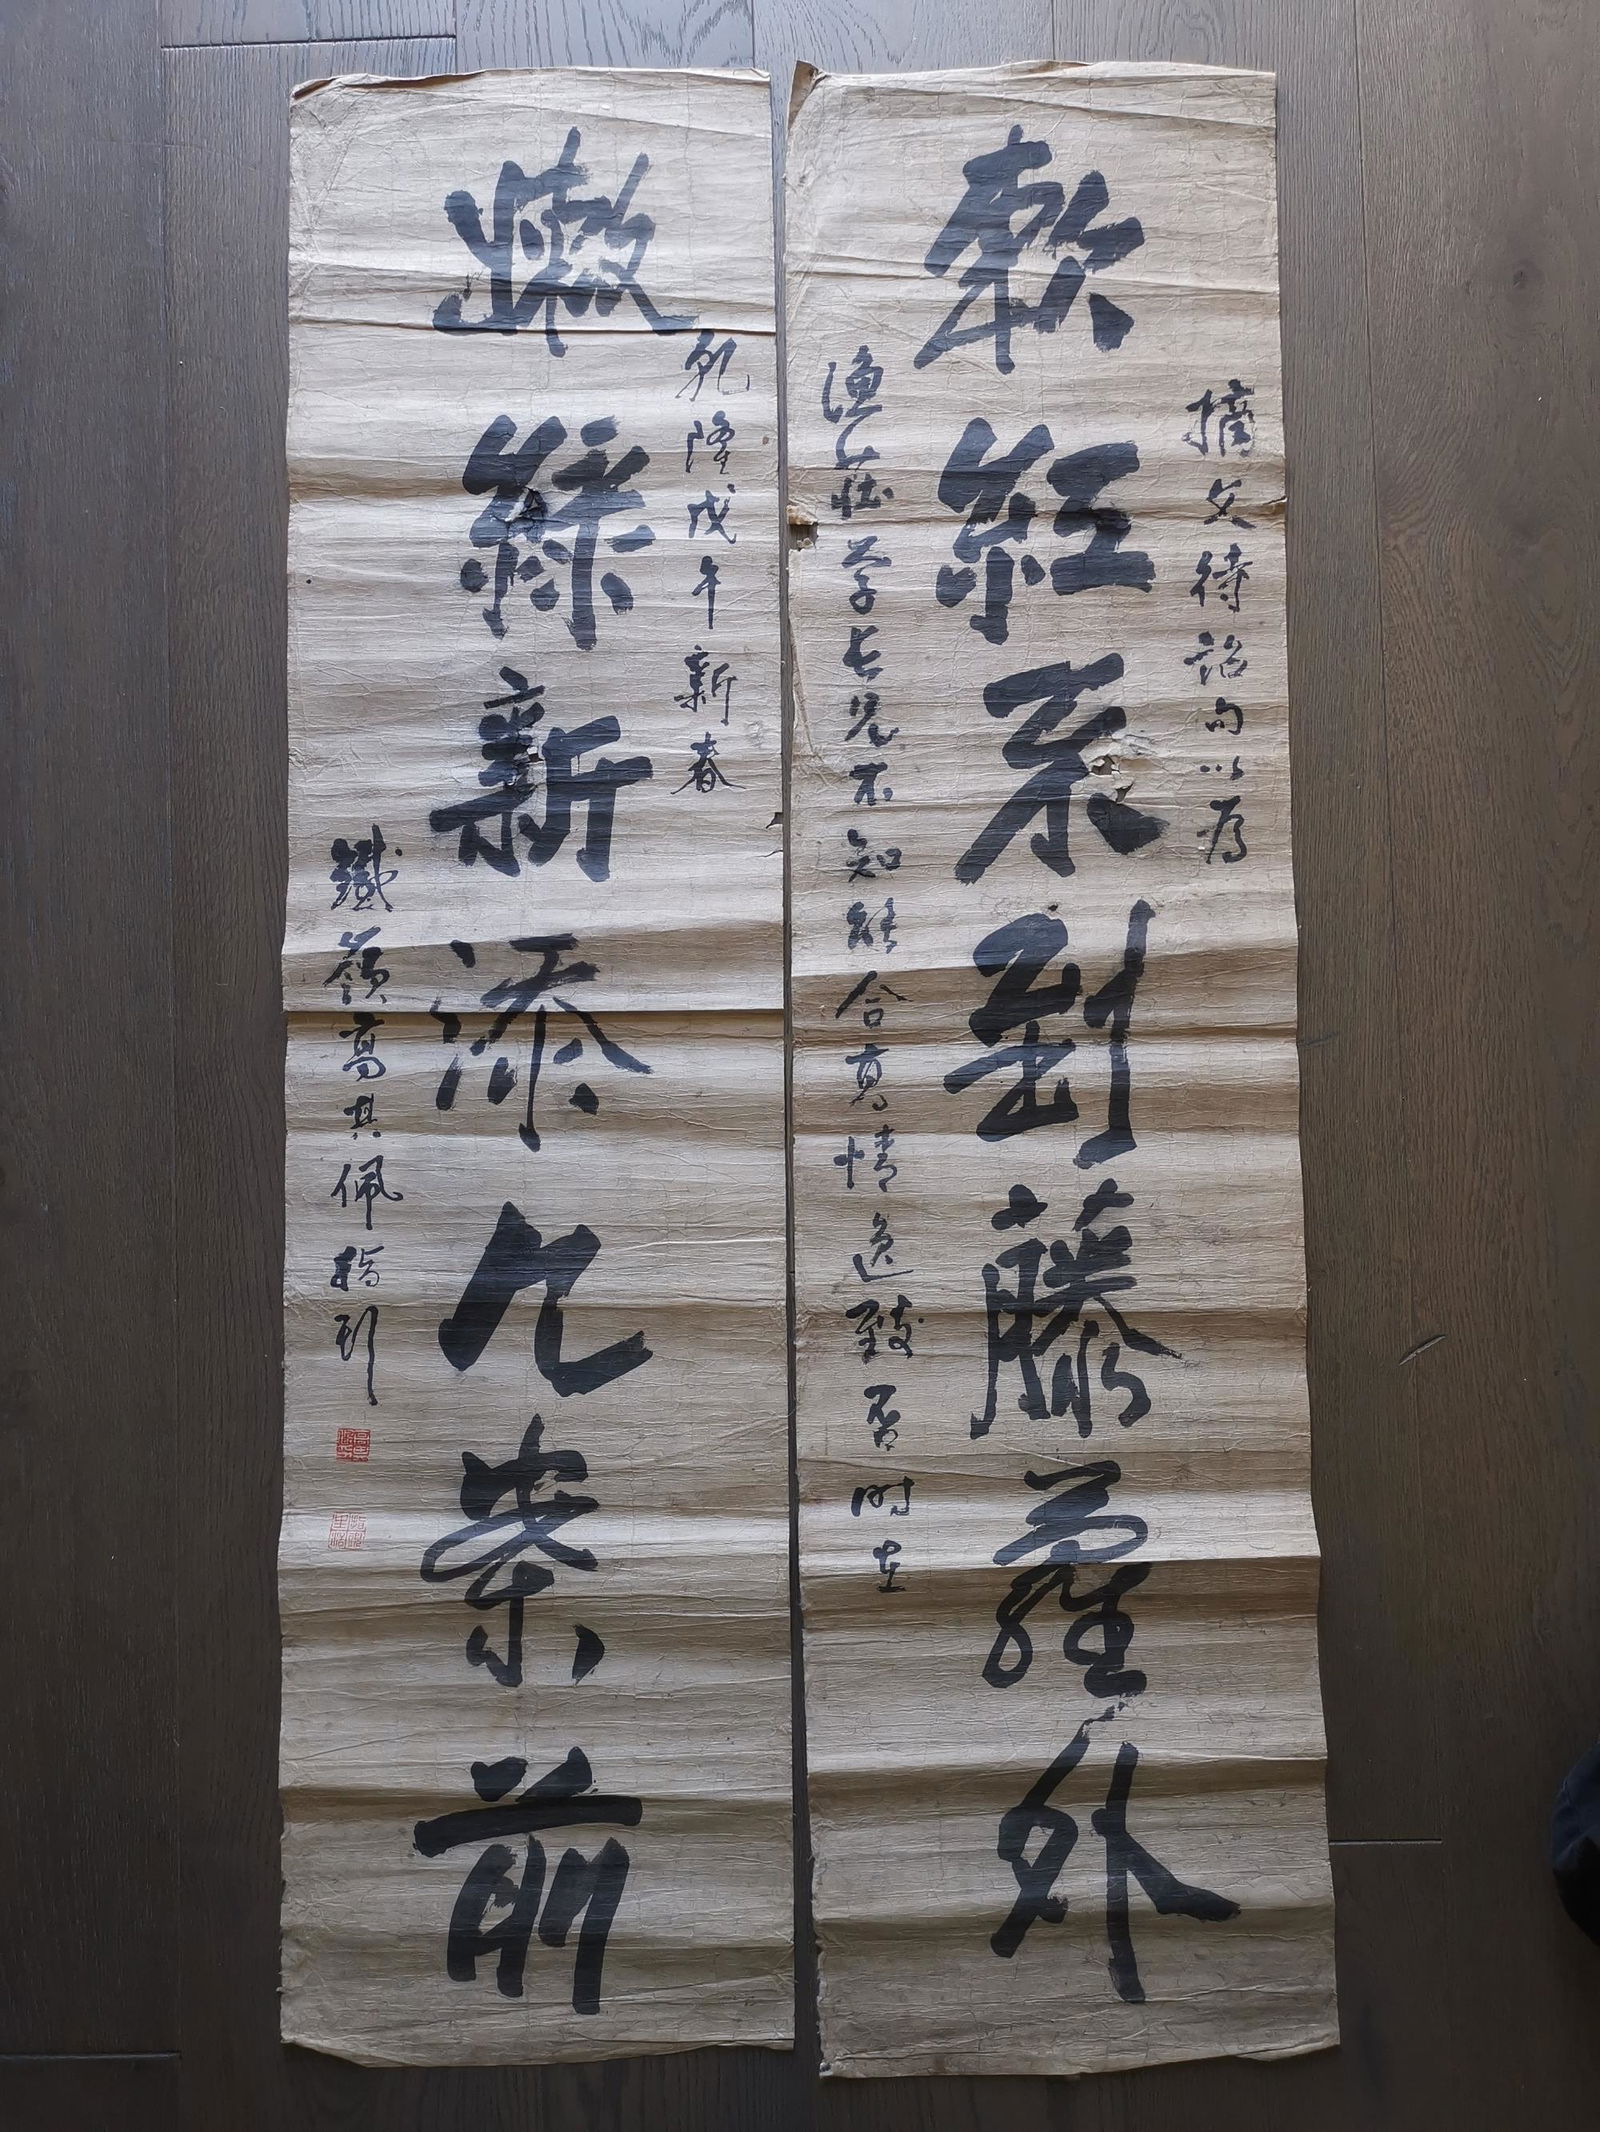 摘文待詔句以為
軟紅不到藤蘿外
漁莊學長兄不知能合高情逸致否時在
乾隆戊午新春
嫩綠新添几案前
鐵嶺高其佩指
指頭生活